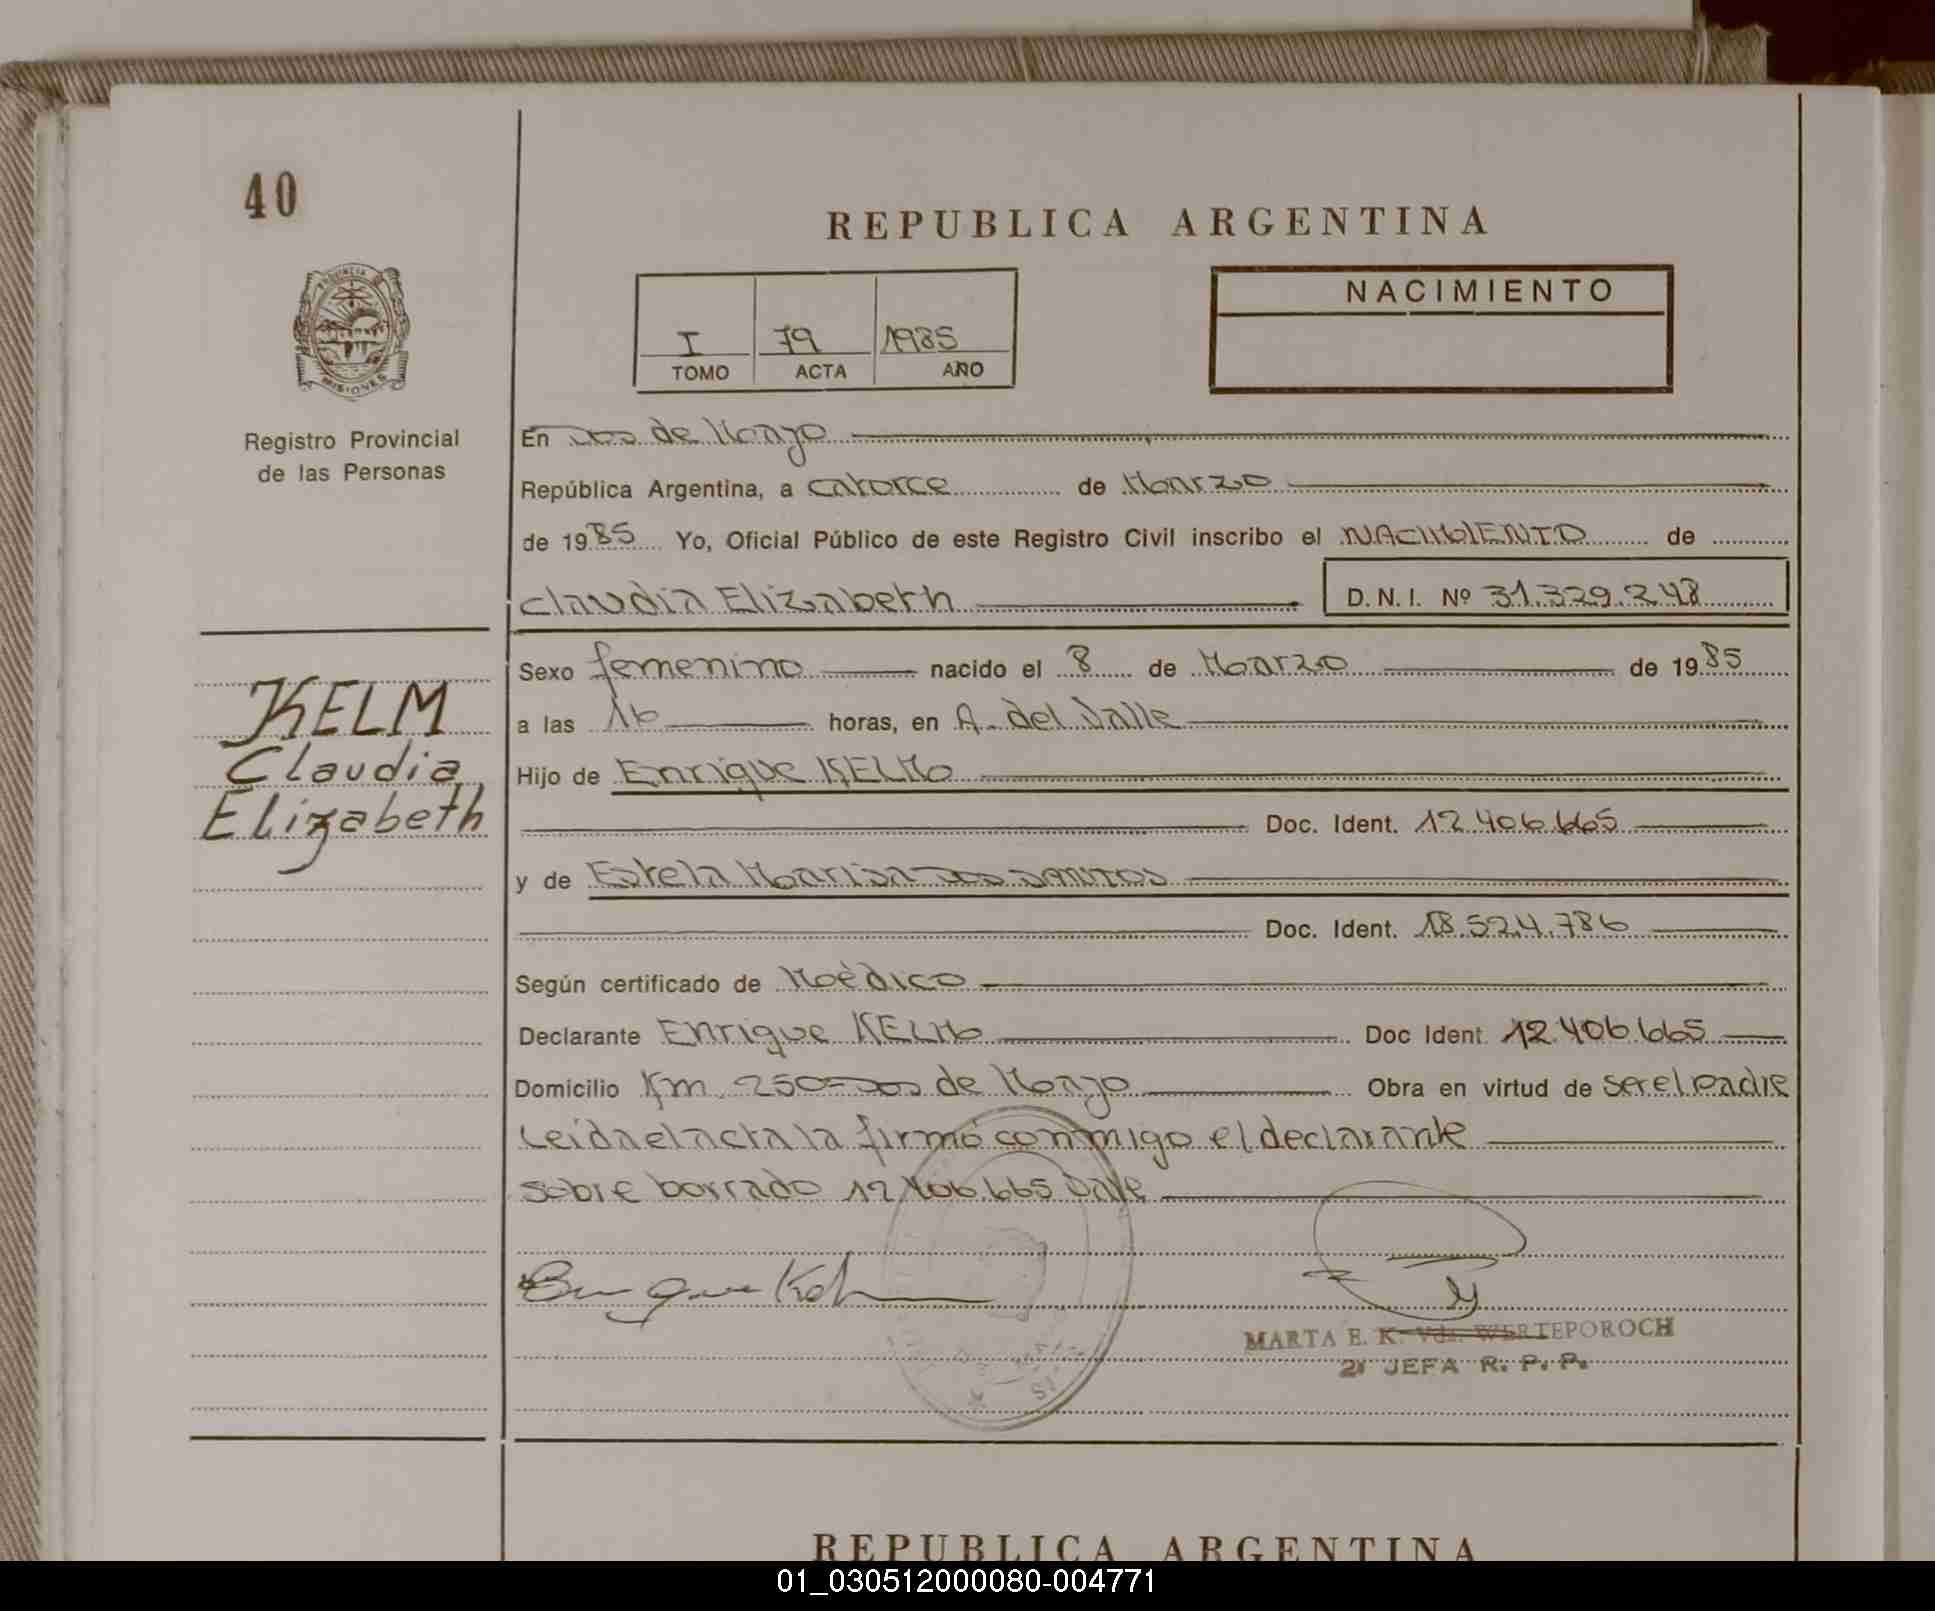 40
REPUBLICA ARGENTINA
PROVINCIA
MISIONES
Registro Provincial
de las Personas
I 79 1985
TOMO ACTA AÑO
NACIMIENTO
En Dos de Mayo
República Argentina, a catorce de Marzo
de 1985 Yo, Oficial Público de este Registro Civil inscribo el NACIMIENTO de
Claudia Elizabeth D. N. I. Nº 31.329.248
KELM
Claudia
Elizabeth
Sexo femenino nacido el 8 de Marzo de 1985
a las 16 horas, en A. del Valle
Hijo de Enrique KELM
Doc. Ident. 12.406.665
y de Estela Marisa DOS SANTOS
Doc. Ident. 18.524.786
Según certificado de Médico
Declarante Enrique KELM Doc Ident. 12.406.665
Domicilio Km. 250-Dos de Mayo Obra en virtud de ser el padre
Leida el acta la firmó conmigo el declarante
sobre borrado 12.406.665 Vale
Enrique Kelm
MARTA E. K. Vda. WERTEPOROCH
2ª JEFA R. P. P.
REPUBLICA ARGENTINA
01_030512000080-004771